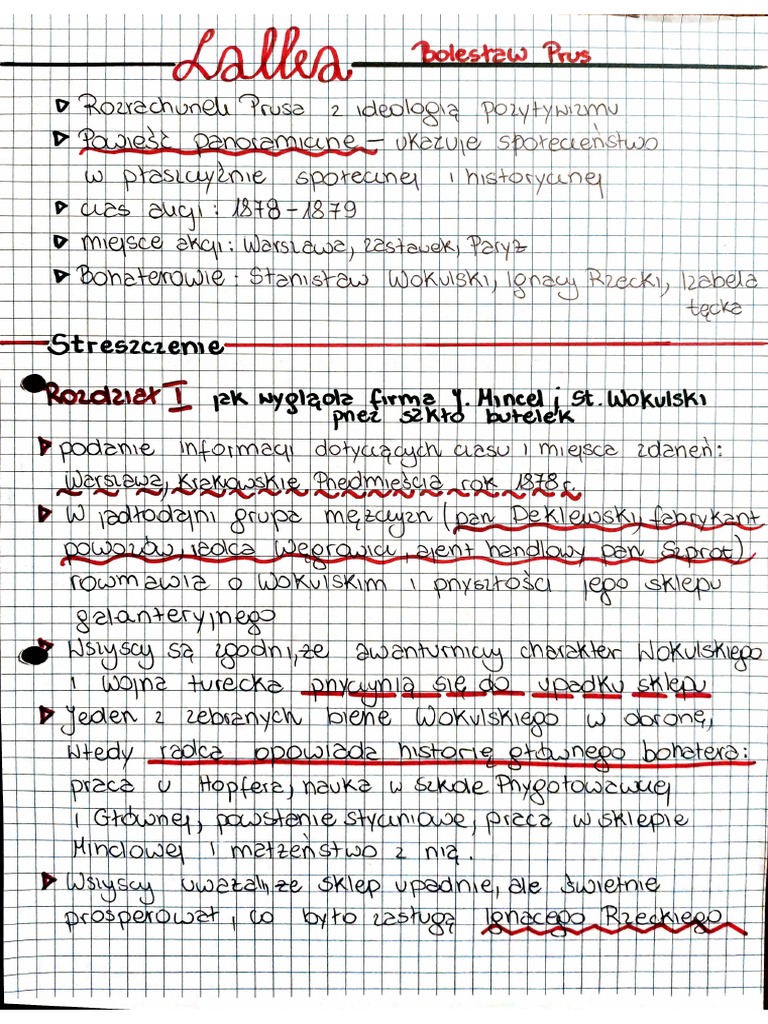 Lalka Bolesław Prus
Rozrachunek Prusa z ideologią pozytywizmu
Powieść panoramiczna – ukazuje społeczeństwo
w płaszczyźnie społecznej i historycznej
czas akcji: 1878-1879
miejsce akcji: Warszawa, zasławek, Paryż
Bohaterowie: Stanisław Wokulski, Ignacy Rzecki, Izabela
Łęcka
Streszczenie
Rozdział I jak wygląda firma J. Mincel i St. Wokulski
przez szkło butelek
podanie informacji dotyczących czasu i miejsca zdarzeń:
Warszawa, Krakowskie Przedmieścia rok 1878 r.
W jadłodajni grupa mężczyzn (pan Deklewski, fabrykant
powozów, radca Węgrowicz, ajent handlowy pan Szprot)
rozmawia o Wokulskim i przyszłości jego sklepu
galanteryjnego
Wszyscy są zgodni, że awanturniczy charakter Wokulskiego
i wojna turecka przyczynią się do upadku sklepu
Jeden z zebranych bierze Wokulskiego w obronę,
wtedy radca opowiada historię głównego bohatera:
praca u Hopfera, nauka w Szkole Przygotowawczej
i Głównej, powstanie styczniowe, praca w sklepie
Minclowej i małżeństwo z nią.
Wszyscy uważali, że sklep upadnie, ale świetnie
prosperował, co było zasługą Ignacego Rzeckiego